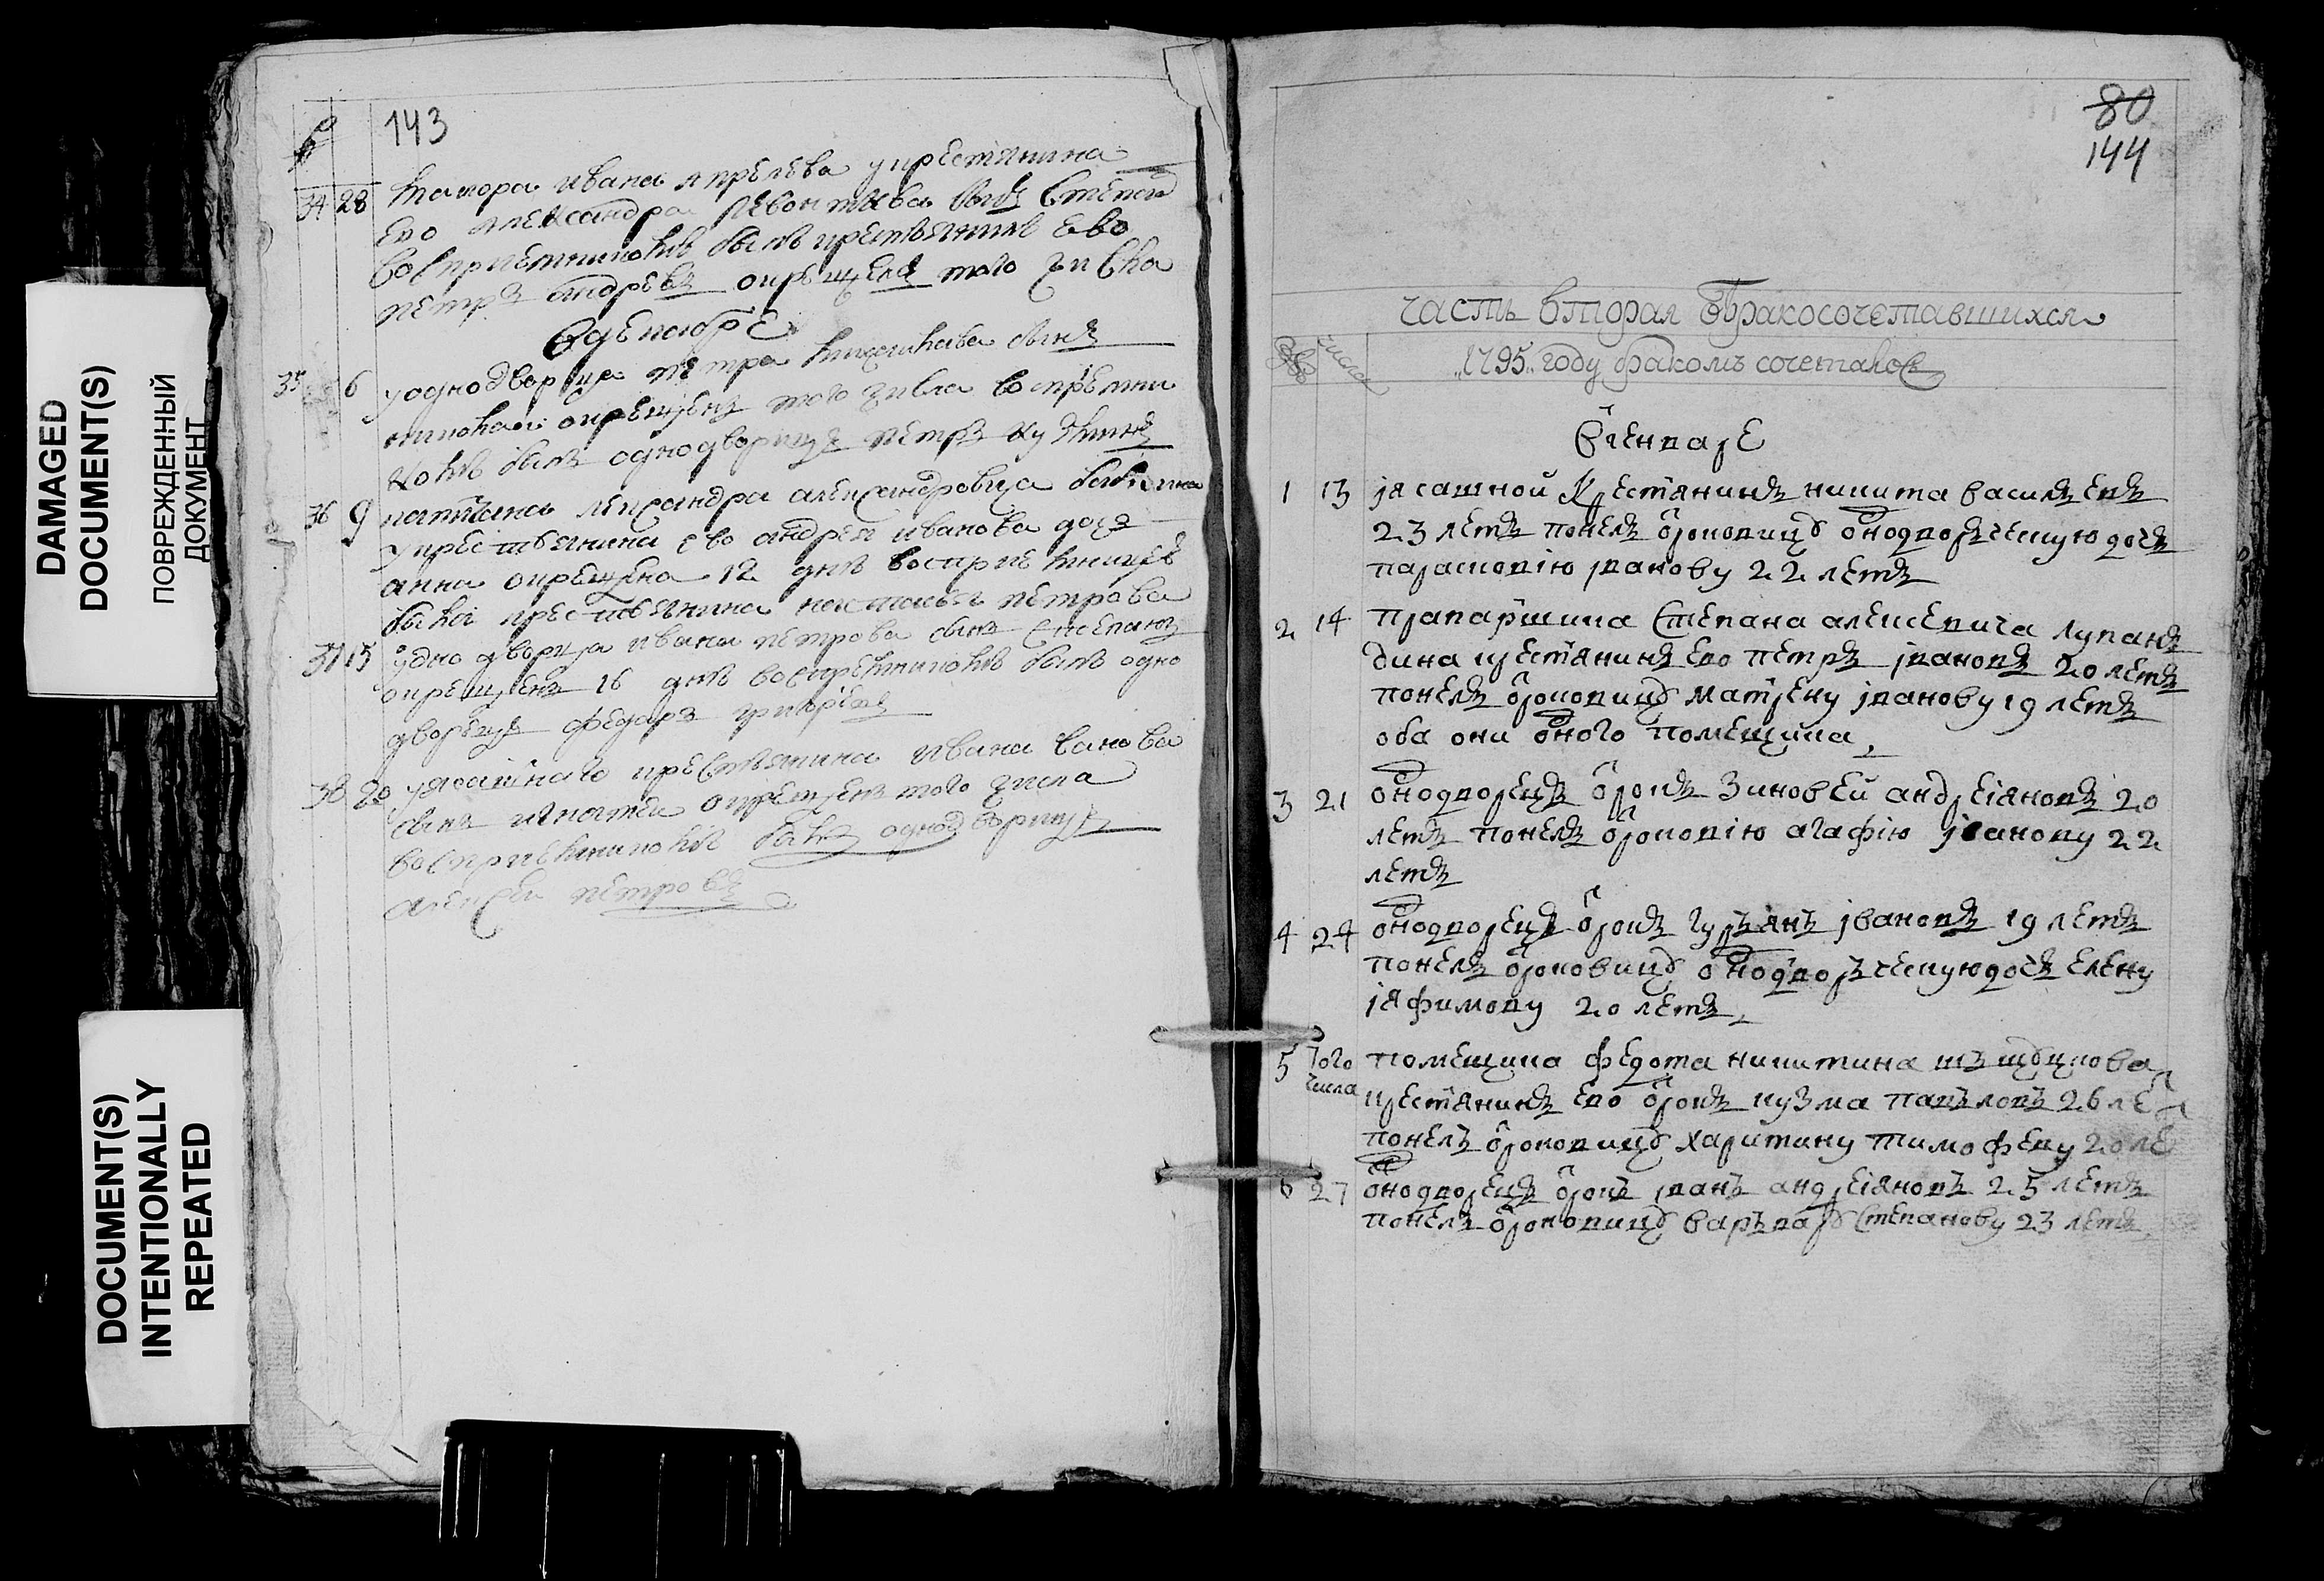 DAMAGED
DOCUMENT(S)
ПОВРЕЖДЕННЫЙ
ДОКУМЕНТ
DOCUMENT(S)
INTENTIONALLY
REPEATED
143
34 28 маиора ивана апрелева у крестянина
ево александра левонтьева сынъ степанъ
восприемникомъ былъ крестьянинъ ево
петръ андревъ окрещенъ того числа
в декабре
35 6 у однодворца петра сынъ
окрещенъ того числа восприемни
комъ былъ однодворецъ петръ
36 9 капитана александра александровича
у крестьянина ево андрея иванова дочь
анна окрещена 12 дня восприемницею
была крестьянина настасья петрова
37 15 у однодворца ивана петрова сынъ степанъ
окрещенъ 16 дня восприемникомъ былъ одно
дворецъ федоръ григорьевъ
38 20 у ясашнаго крестьянина ивана
сынъ игнатеи окрещенъ того числа
восприемникомъ былъ однодворецъ
алексеи петровъ
80
144
часть вторая о бракосочетавшихся
числа
1795 году бракомъ сочеталось
в генваре
1 13 јасашной крестянинъ никита василъевъ
23 летъ понелъ ѡтроковицѹ однодворъческую дочь
парасковію јванову 22 летъ
2 14 прапаршика степана алексевича лупанъ
дина крестянинъ ево петръ јвановъ 20 летъ
понелъ ѡтроковицѹ матрену јванову 19 летъ
оба они одного помещика
3 21 однодворецъ отрокъ зиновей андреіяновъ 20
летъ понелъ отроковію агафію јванову 22
летъ
4 24 однодворецъ отрокъ гуръянъ јвановъ 19 летъ
понелъ отроковицѹ однодворъческую дочь елену
јяфимову 20 летъ
5 того числа помещика федота никитина
крестянинъ ево отрокъ кузма павъловъ 26 ле
понелъ отроковицѹ харитину тимофеву 20 ле
6 27 однодворецъ отрокъ јванъ андреіяновъ 25 летъ
понелъ отроковицѹ варъварѹ степанову 23 летъ